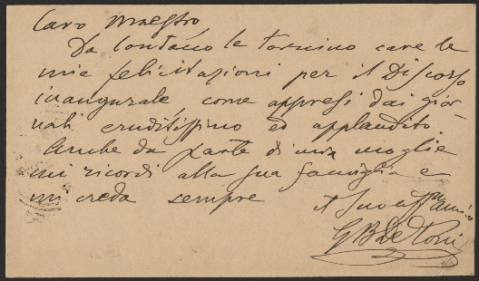 Caro Maestro,
Da lontano le tornino care le
mie felicitazioni per il Discorso
inaugurale, come appresi dai gior-
nali eruditissimo ed applaudito.
Anche da parte di mia moglie
mi ricordi alla sua famiglia e
mi creda sempre
il Suo aff.mo amico
G B De Toni